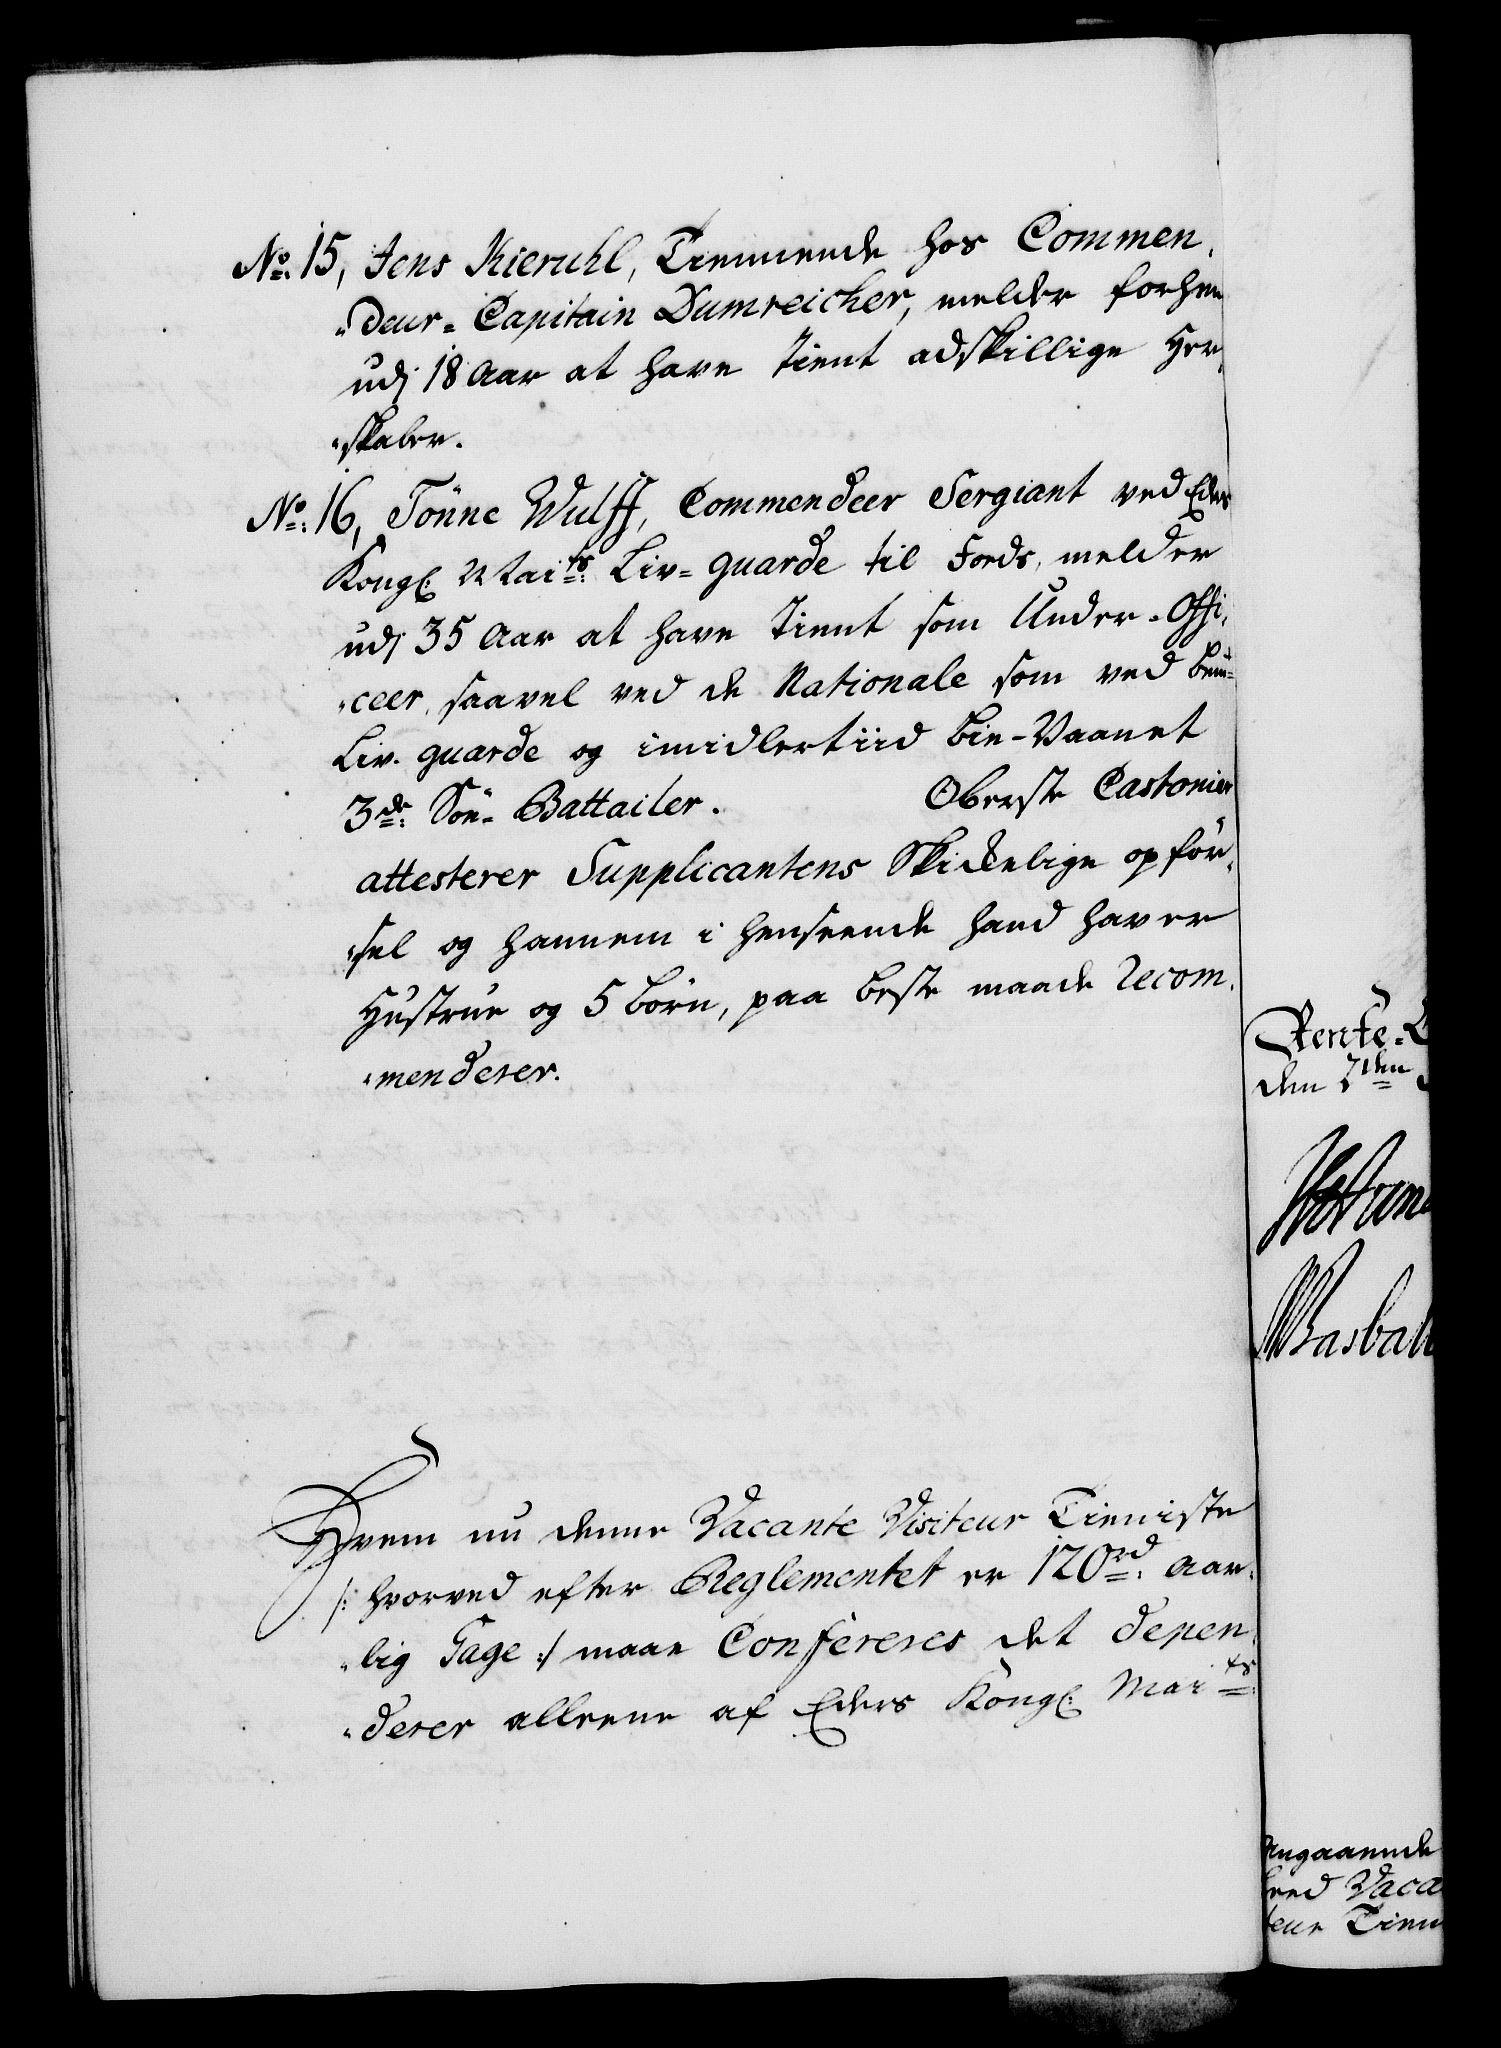 No: 15, Jens Kieruhl, Tienende hos Commen-
"deur-Capitain Dumreicher, melder forhen
udj 18 Aar at have tient adskillige Her-
"skaber.
No: 16, Tönne Wulff, Commendeer Sergiant ved Eders
Kongl: Maits: Liv-guarde til Fods, melder
udj 35 Aar at have tient som Under-Offi-
"ceer, saavel ved de Nationale som ved bem:
Liv-guarde og imidlertiid bie-Vaanet
3de: Söe-Battailer. Oberste Castonier
attesterer Supplicantens Skikkelige opför-
"sel og hannem i henseende hand haver
Hustrue og 5 börn, paa beste maade recom-
"menderer.
Hvem nu denne Vacante Visiteur Tieniste
/: hvorved efter Reglementet er 120 rd: aar-
"lig Gage :/ maae Confereres det depen-
"derer alleene af Eders Kongl: Maits:
Rente-
den 7den
Angaaende
Vaca
teur Tien